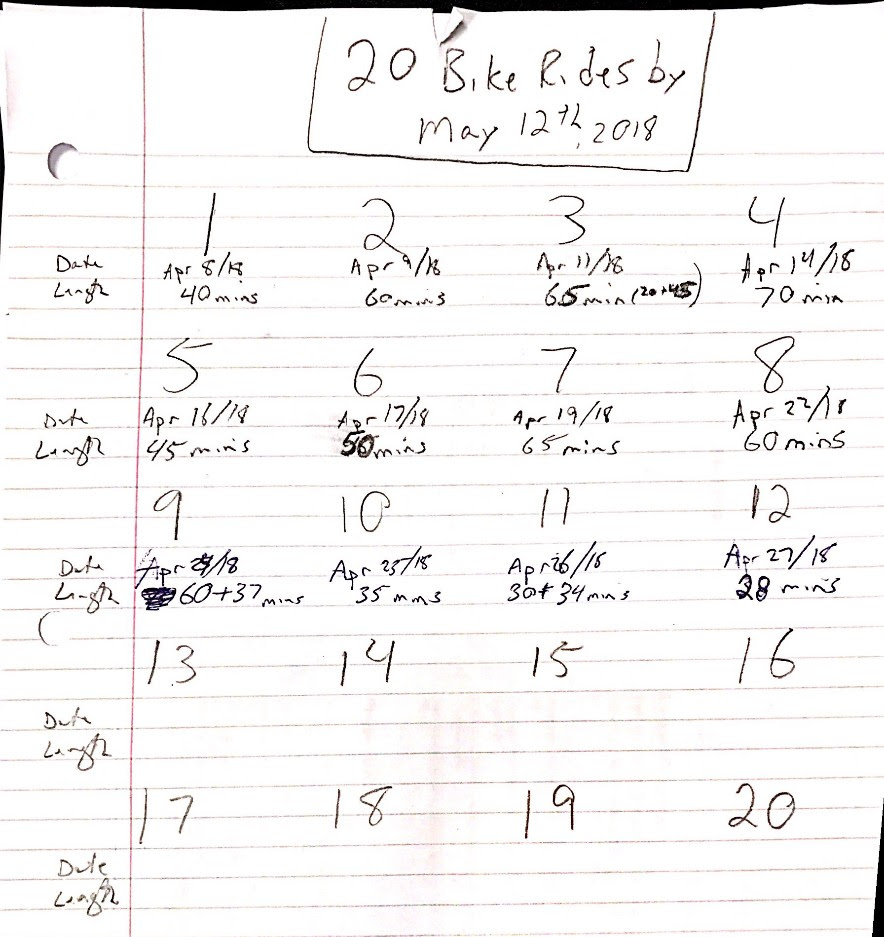 20 Bike Rides by
May 12th, 2018
1 2 3 4
Date Apr 8/18 Apr 9/18 Apr 11/18 Apr 14/18
Length 40 mins 60 mins 65 min (20+45) 70 min
5 6 7 8
Date Apr 16/18 Apr 17/18 Apr 19/18 Apr 22/18
Length 45 mins 50 mins 65 mins 60 mins
9 10 11 12
Date Apr /18 Apr 25/18 Apr 26/18 Apr 27/18
Length 60+37 mins 35 mins 30+34 mins 28 mins
13 14 15 16
Date
Length
17 18 19 20
Date
Length